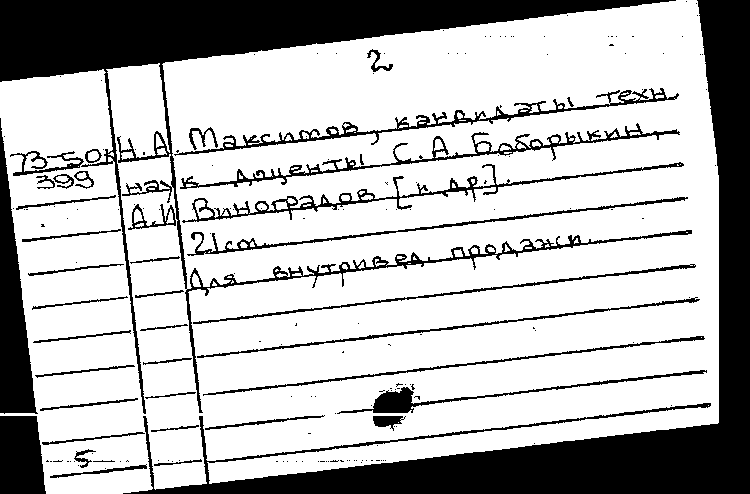 2
73-50к Н. А. Максимов, кандидаты техн.
399 наук доценты С. А. Боборыкин,
А. И. Виноградов [и др.].
21 см.
Для внутривед. продажи.
5